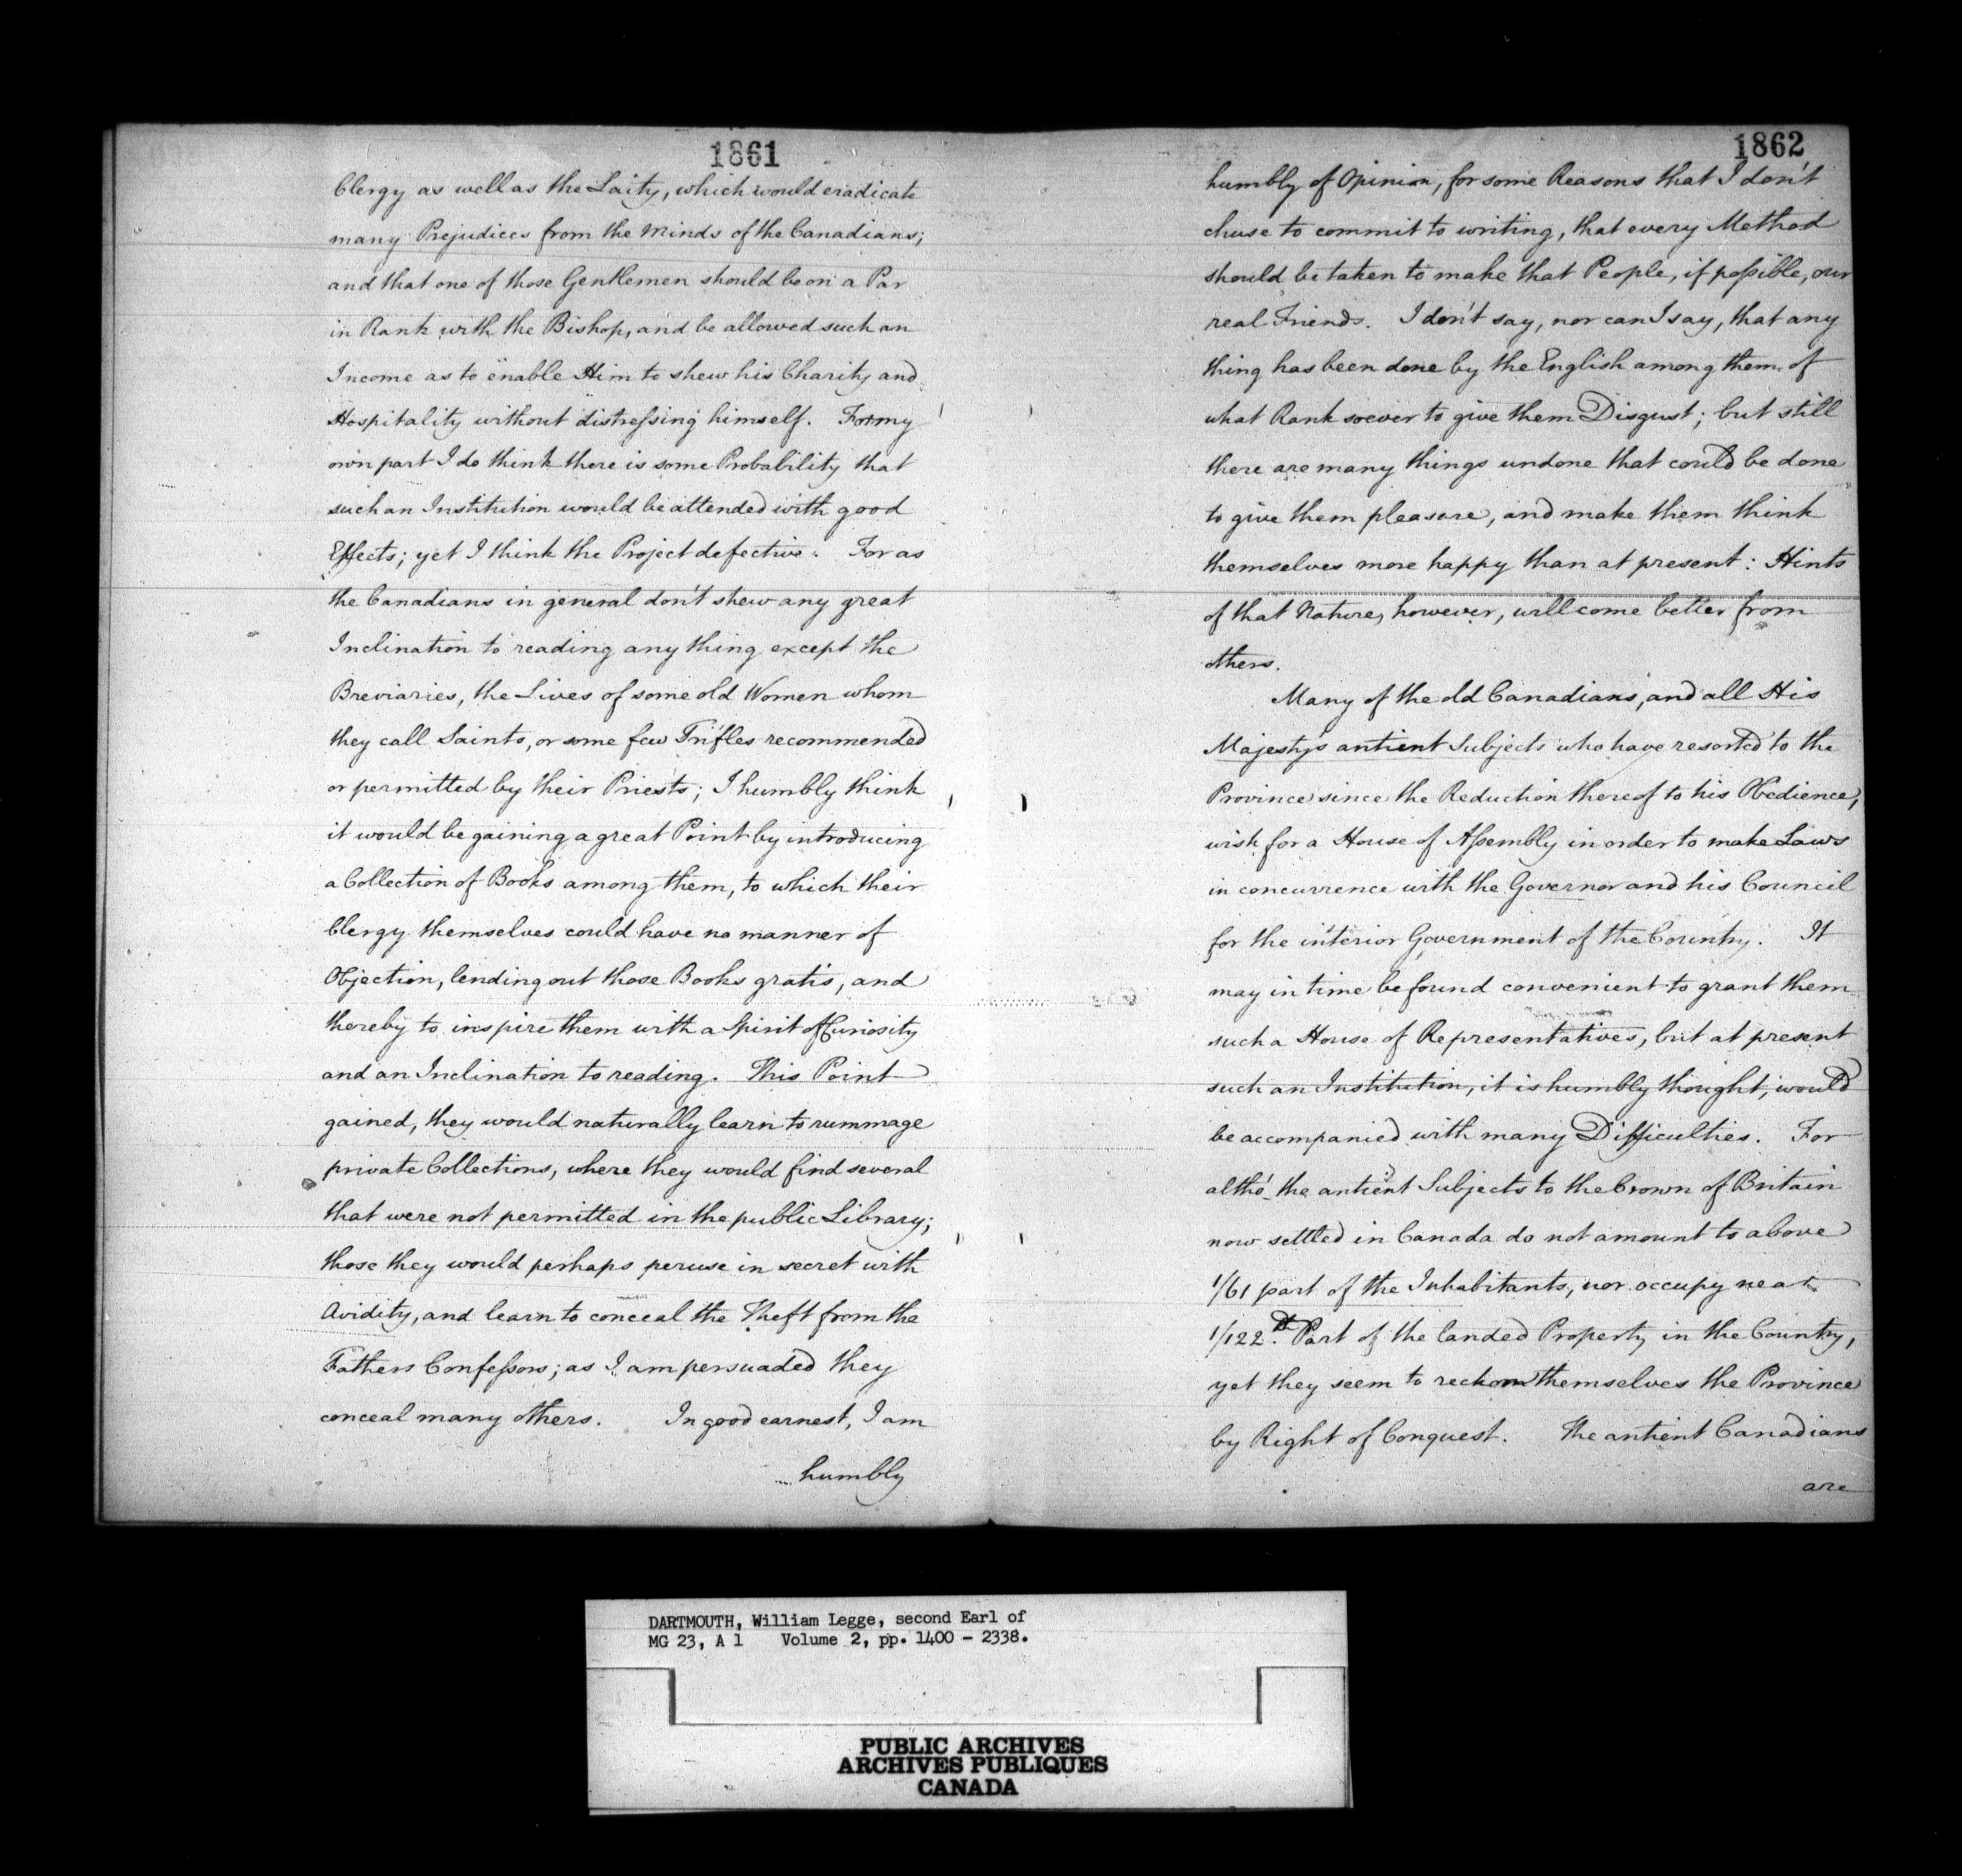 1861
Clergy as well as the Laity, which would eradicate
many Prejudices from the Minds of the Canadians;
and that one of those Gentlemen should be on a Par
in Rank with the Bishop, and be allowed such an
Income as to enable Him to shew his Charity and
Hospitality without distressing himself. For my
own part I do think there is some Probability that
such an Institution would be attended with good
Effects; yet I think the Project defective. For as
the Canadians in general don't shew any great
Inclination to reading any thing except the
Breviaries, the Lives of some old Women whom
they call Saints, or some few Trifles recommended
or permitted by their Priests; I humbly think
it would be gaining a great Point by introducing
a Collection of Books among them, to which their
Clergy themselves could have no manner of
Objection, lending out those Books gratis, and
thereby to inspire them with a Spirit of Curiosity
and an Inclination to reading. This Point
gained, they would naturally learn to rummage
private Collections, where they would find several
that were not permitted in the public Library;
those they would perhaps peruse in secret with
Avidity, and learn to conceal the Theft from the
Fathers Confessors; as I am persuaded they
conceal many others. In good earnest, I am
humbly
1862
humbly of Opinion, for some Reasons that I don't
chuse to commit to writing, that every Method
should be taken to make that People, if possible, our
real Friends. I don't say, nor can I say, that any
thing has been done by the English among them of
what Rank soever to give them Disgust; but still
there are many things undone that could be done
to give them pleasure, and make them think
themselves more happy than at present: Hints
of that Nature, however, will come better from
others.
Many of the old Canadians, and all His
Majesty's antient Subjects who have resorted to the
Province since the Reduction thereof to his Obedience,
wish for a House of Assembly in order to make Laws
in concurrence with the Governor and his Council
for the interior Government of the Country. It
may in time be found convenient to grant them
such a House of Representatives, but at present
such an Institution, it is humbly thought, would
be accompanied with many Difficulties. For
altho' the antient Subjects to the Crown of Britain
now settled in Canada do not amount to above
1/61 part of the Inhabitants, nor occupy neat
1/122.d Part of the landed Property in the Country,
yet they seem to reckon themselves the Province
by Right of Conquest. The antient Canadians
are
DARTMOUTH, William Legge, second Earl of
MG 23, A 1 Volume 2, pp. 1400 - 2338.
PUBLIC ARCHIVES
ARCHIVES PUBLIQUES
CANADA